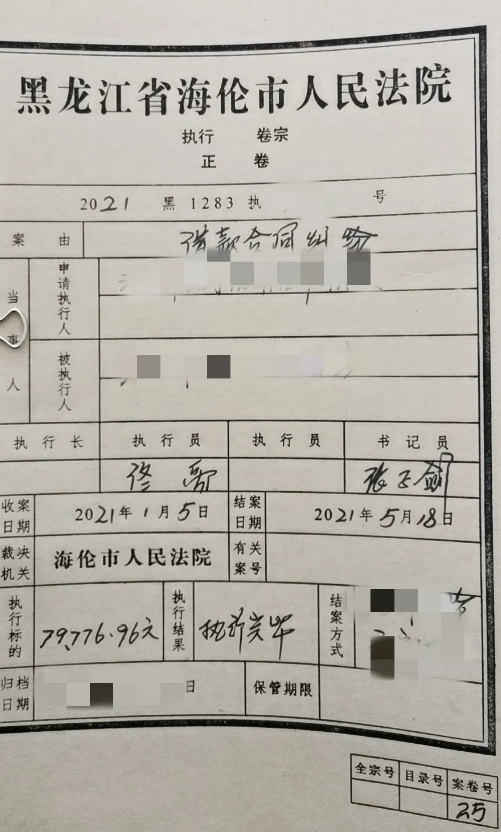 黑龙江省海伦市人民法院
执行 卷宗
正 卷
2021 黑 1283 执 号
案由 借款合同纠纷
当事人
申请执行人
被执行人
执行长 执行员 执行员 书记员
佟
收案日期 2021年1月5日 结案日期 2021年5月18日
裁决机关 海伦市人民法院 有关案号
执行标的 79,776.96元 执行结果 执行完毕 结案方式
归档日期 日 保管期限
全宗号 目录号 案卷号
25